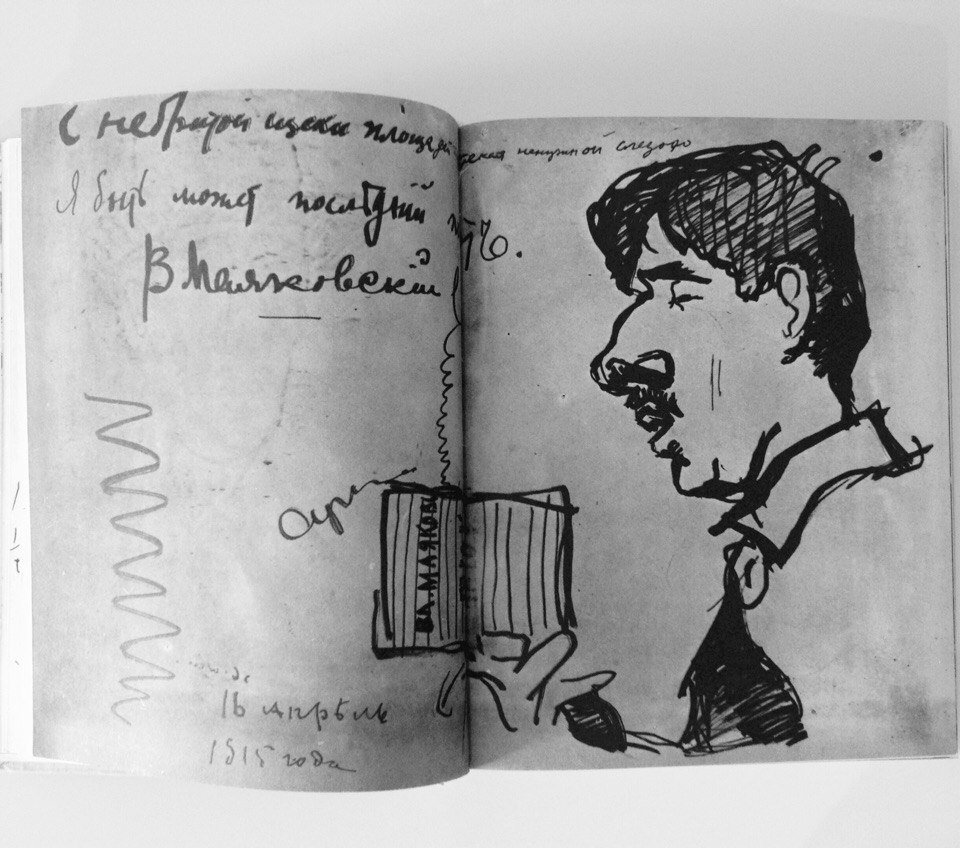 С небритой щеки площадей стекая ненужной слезою
Я быть может послѣдний
В Маяковский
ВЛ. МАЯКОВ
16 апрѣль
1915 года